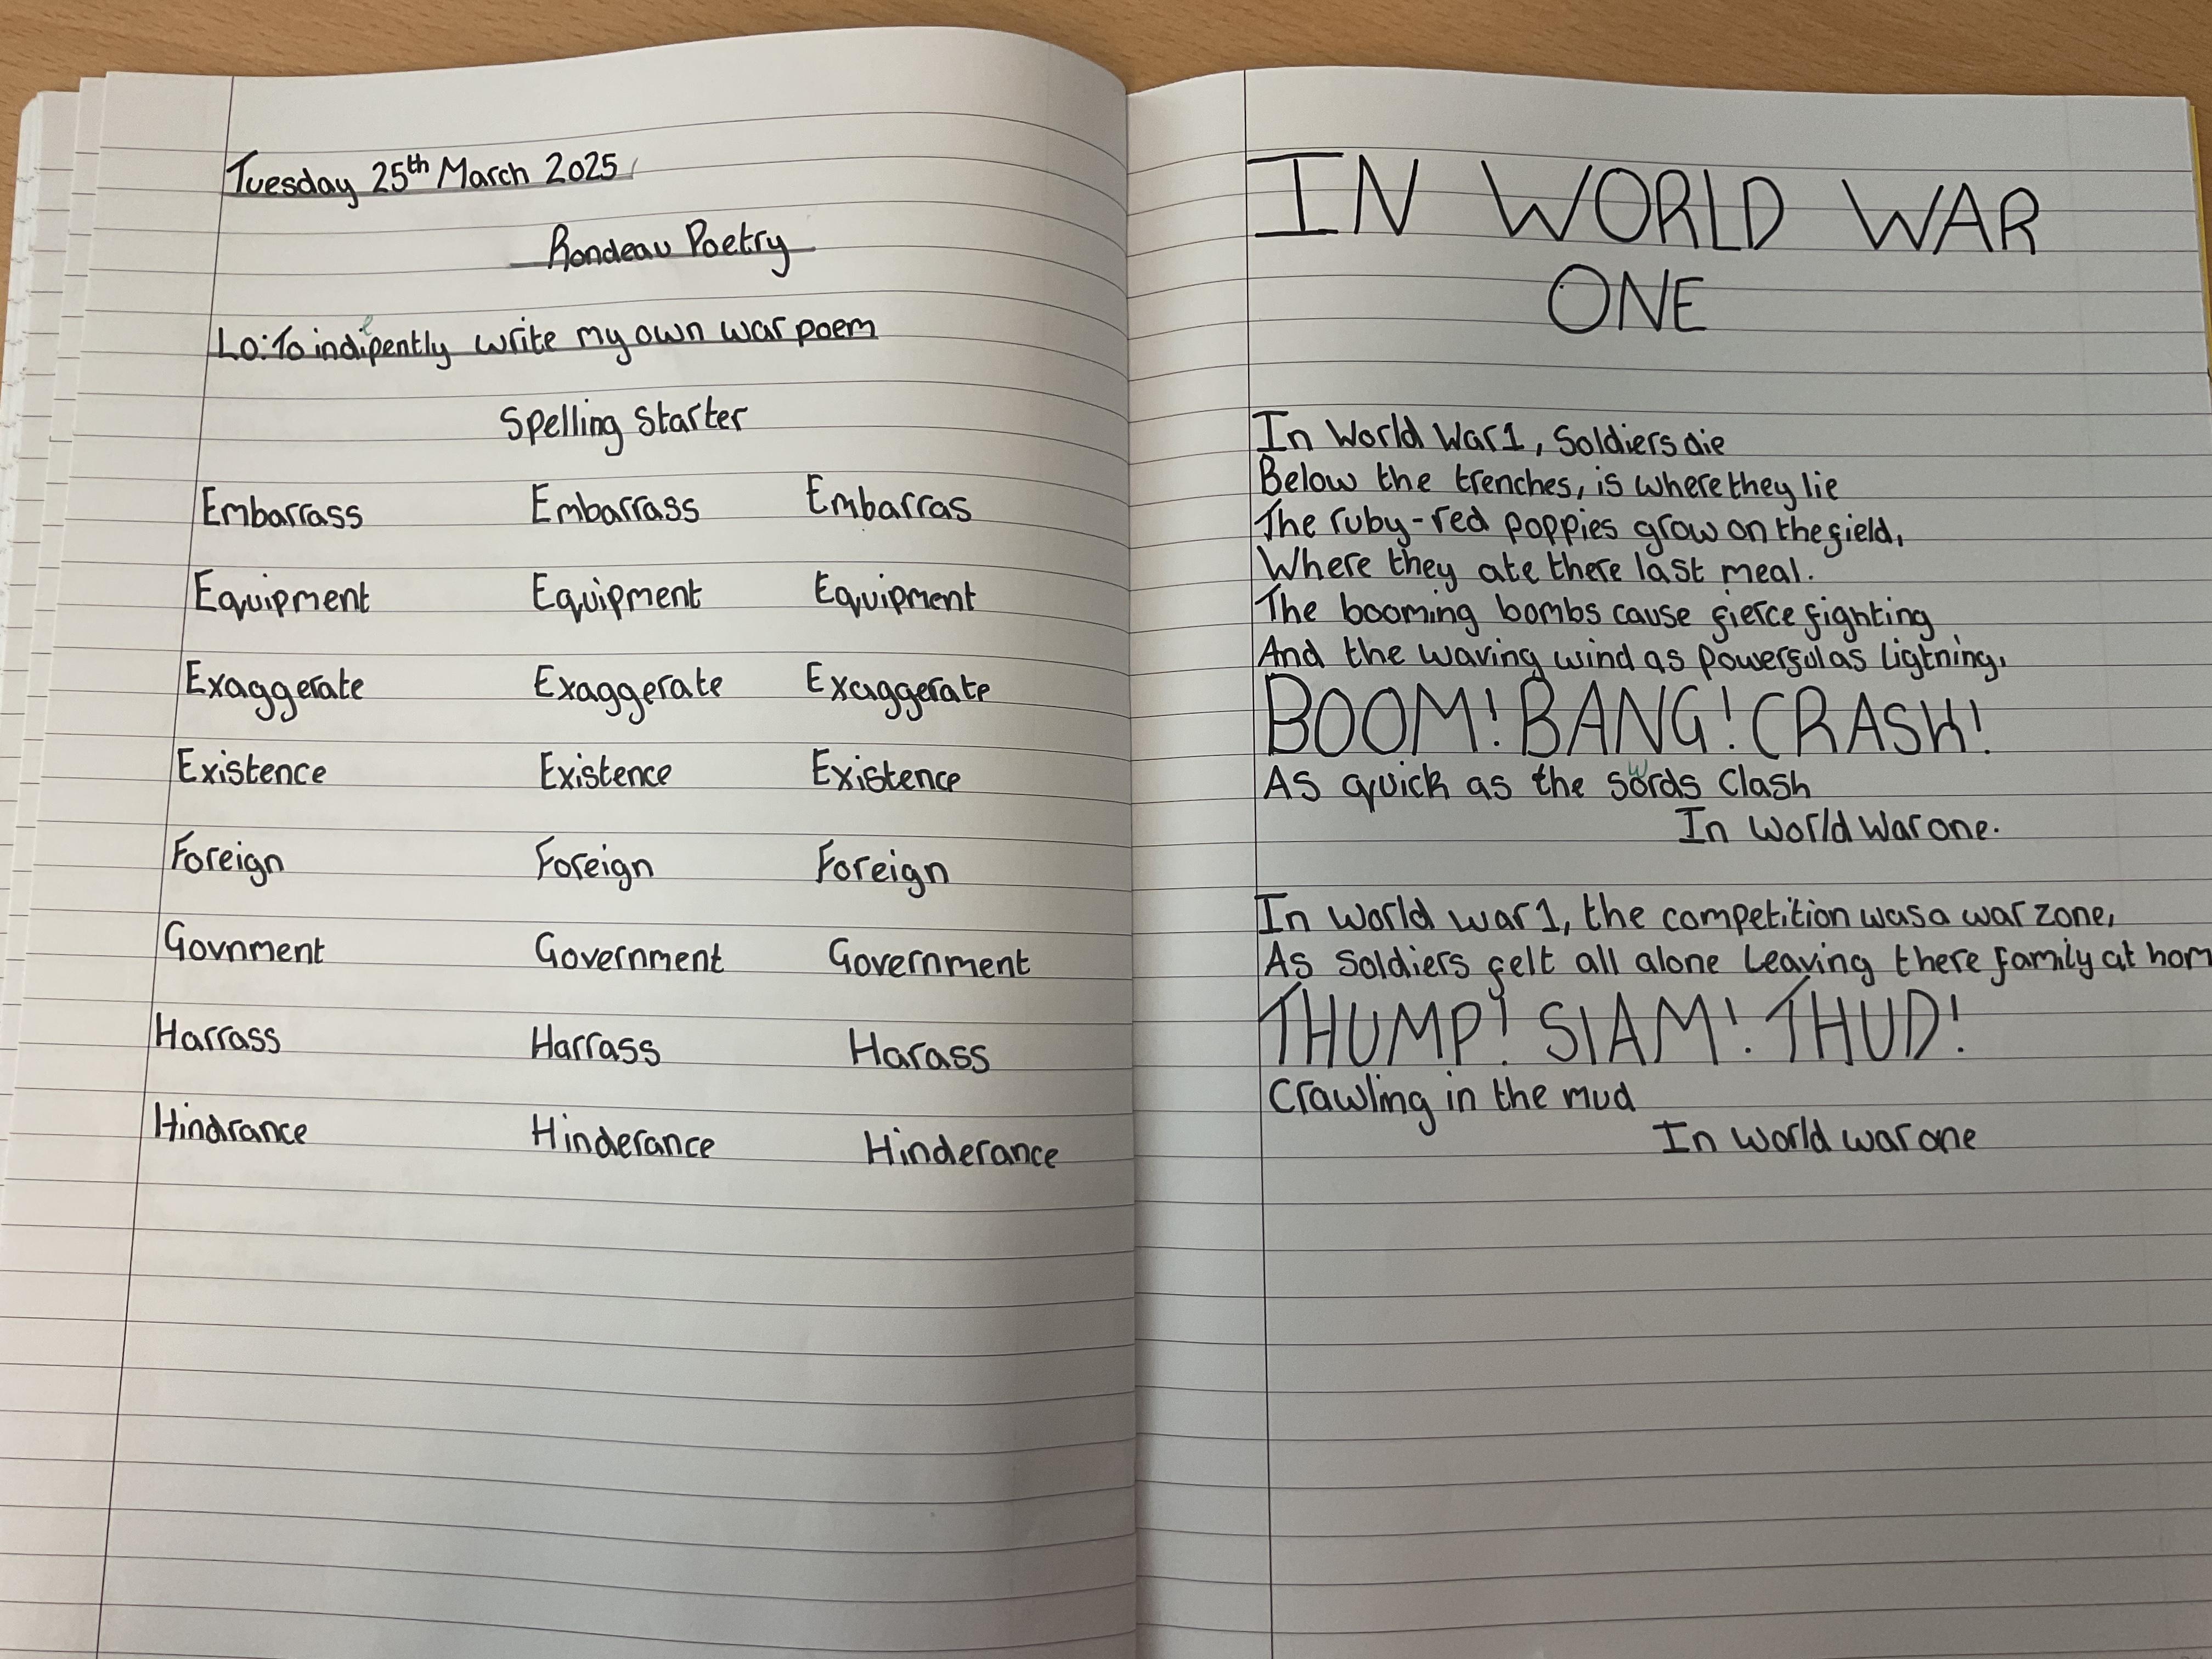 Tuesday 25th March 2025
Rondeau Poetry
LO: To indipently write my own war poem
Spelling Starter
Embarrass Embarrass Embarras
Equipment Equipment Equipment
Exaggerate Exaggerate Exaggerate
Existence Existence Existence
Foreign Foreign Foreign
Govnment Government Government
Harrass Harrass Harass
Hindrance Hinderance Hinderance
IN WORLD WAR
ONE
In World War 1, Soldiers die
Below the trenches, is where they lie
The ruby-red poppies grow on the field,
Where they ate there last meal.
The booming bombs cause fierce fighting
And the waving wind as powerful as ligtning,
BOOM! BANG! CRASH!
As quick as the swords clash
In World War one.
In world war 1, the competition was a war zone,
As soldiers felt all alone leaving there family at hom
THUMP! SlAM! THUD!
Crawling in the mud
In world war one